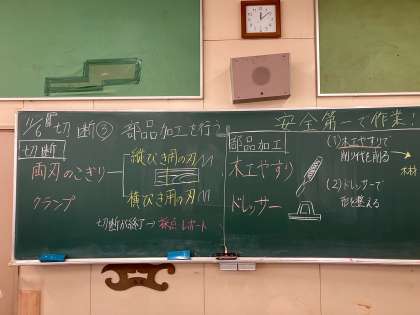 11/6 切断③ 部品加工を行う
安全第一で作業!
切断
両刃のこぎり
縦びき用の刃
横びき用の刃
クランプ
切断が終了→採点レポート
部品加工
木工やすり
ドレッサー
(1)木工やすりで
削り代を削る
木材
(2)ドレッサーで
形を整える